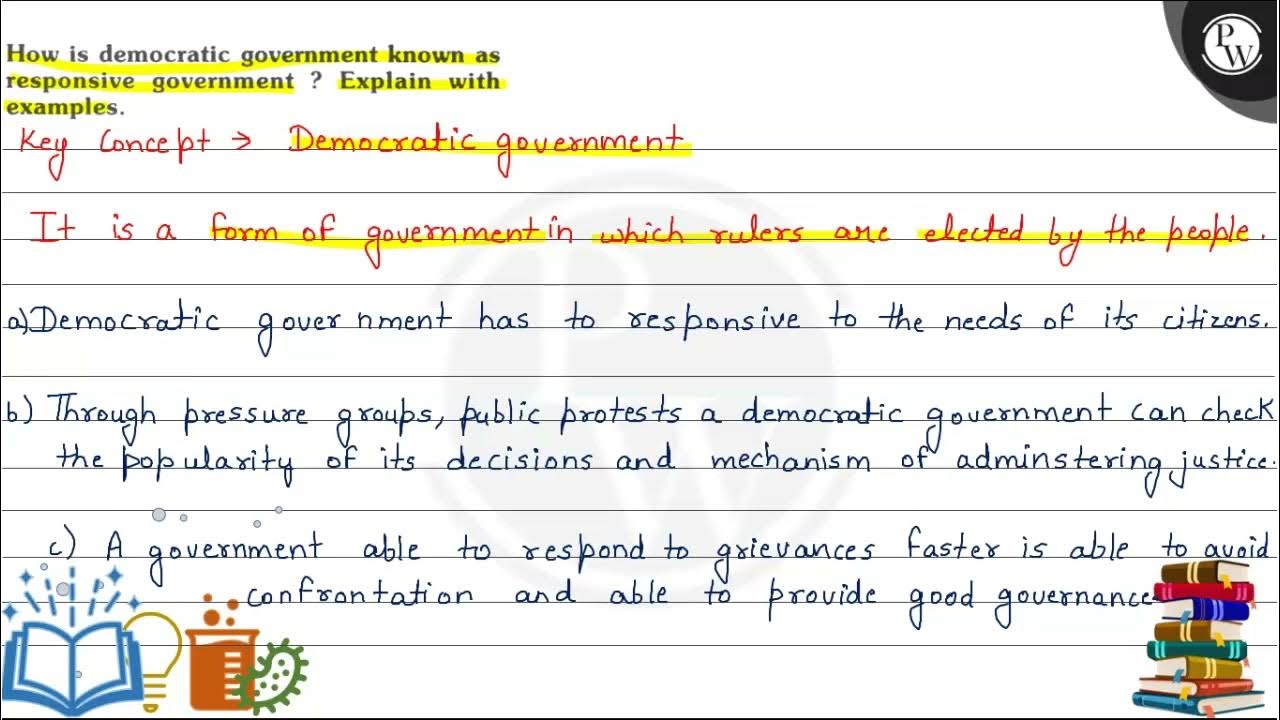 How is democratic government known as
responsive government ? Explain with
examples.
PW
Key Concept → Democratic government
It is a form of government in which rulers are elected by the people.
a) Democratic government has to responsive to the needs of its citizens.
b) Through pressure groups, public protests a democratic government can check
the popularity of its decisions and mechanism of adminstering justice.
c) A government able to respond to grievances faster is able to avoid
confrontation and able to provide good governance.